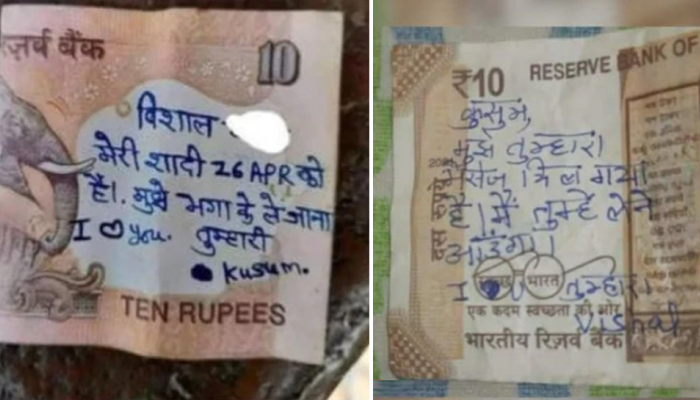 रिज़र्व बैंक
10
विशाल
मेरी शादी 26 APR को
है।. मुझे भगा के ले जाना
I ♡ you. तुम्हारी
kusum.
TEN RUPEES
₹10 RESERVE BANK OF
कुसुम,
मुझे तुम्हारा
मैसेज मिल गया
है। में तुम्हे लेने
आउंगा।
भारत
I तुम्हारा
एक कदम स्वच्छता की ओर
Vishal
भारतीय रिज़र्व बैंक